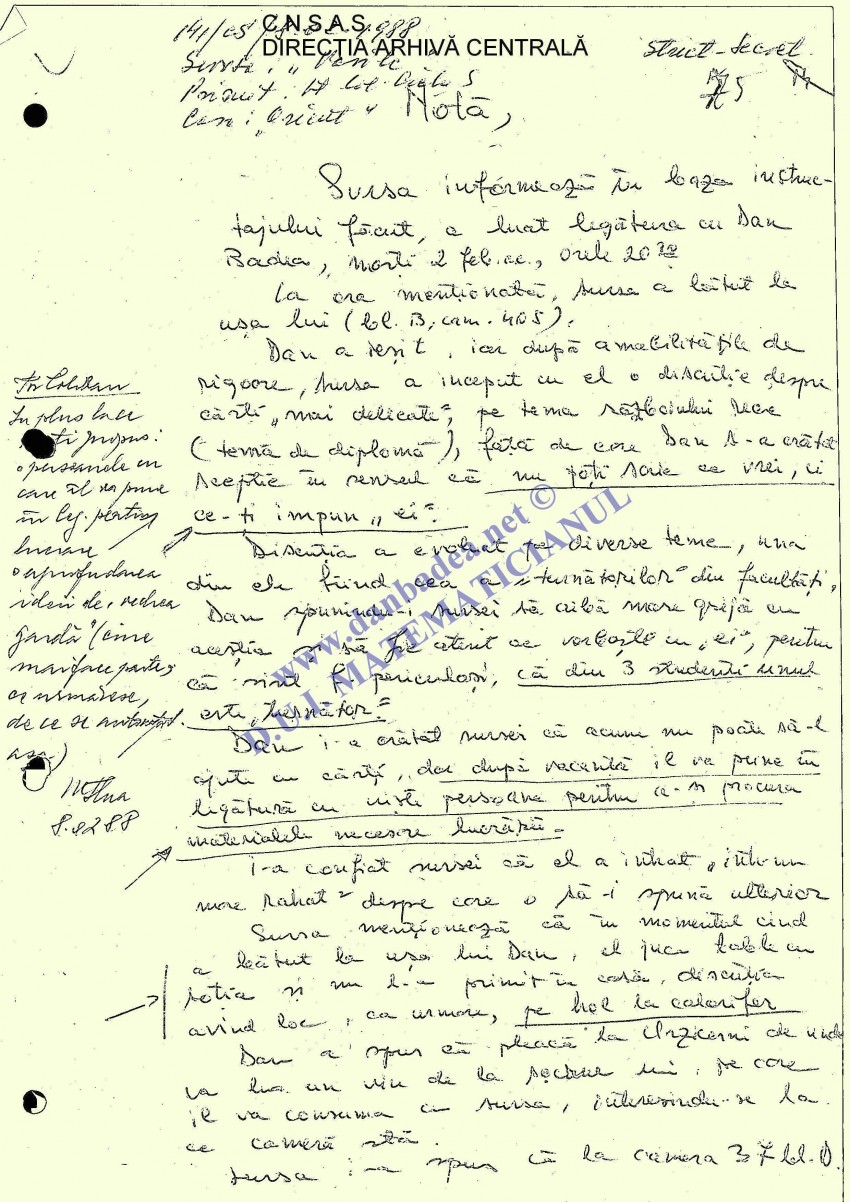 C.N.S.A.S.
DIRECȚIA ARHIVĂ CENTRALĂ
Strict-Secret
75
Notă,
Sursa informează în baza instruc-
tajului făcut, a luat legătura cu Dan
Badea, marți 2 feb. a.c., orele 20
La ora menționată, sursa a bătut la
ușa lui (bl. B, cam. 405).
Dan a ieșit, iar după amabilitățile de
rigoare, sursa a început cu el o discuție despre
cărți „mai delicate", pe tema războiului rece
(temă de diplomă), față de care Dan s-a arătat
sceptic în sensul că nu poți scrie ce vrei, ci
ce-ți impun „ei".
Discuția a evoluat pe diverse teme, una
din ele fiind cea a „turnătorilor" din facultăți,
Dan spunîndu-i sursei să aibă mare grijă cu
aceștia și să fie atent ce vorbește cu „ei", pentru
că sînt f. periculoși, că din 3 studenți unul
este „turnător".
Dan i-a arătat sursei că acum nu poate să-l
ajute cu cărți, dar după vacanță îl va pune în
legătură cu niște persoane pentru a-și procura
materialele necesare lucrării.
I-a confiat sursei că el a intrat „într-un
mare rahat" despre care o să-i spună ulterior
Sursa menționează că în momentul cînd
a bătut la ușa lui Dan, el juca table cu
soția și nu l-a primit în casă, discuția
avînd loc, ca urmare, pe hol la calorifer
Dan a spus că pleacă la Urziceni de unde
va lua un vin de la socrul lui, pe care
îl va consuma cu sursa, interesîndu-se la
ce cameră stă.
Sursa i-a spus că la camera 37 bl. D.
În plus la ce
ți propus:
o persoanele cu
care îl va pune
în leg. pentru
lucrare
o aprofundarea
ideii de „vechea
gardă" (cine
mai face parte,
ce urmăresc,
de ce se autointitul.
așa)
8.02.88
www.danbadea.net ©
D.U.I. MATEMATICIANUL